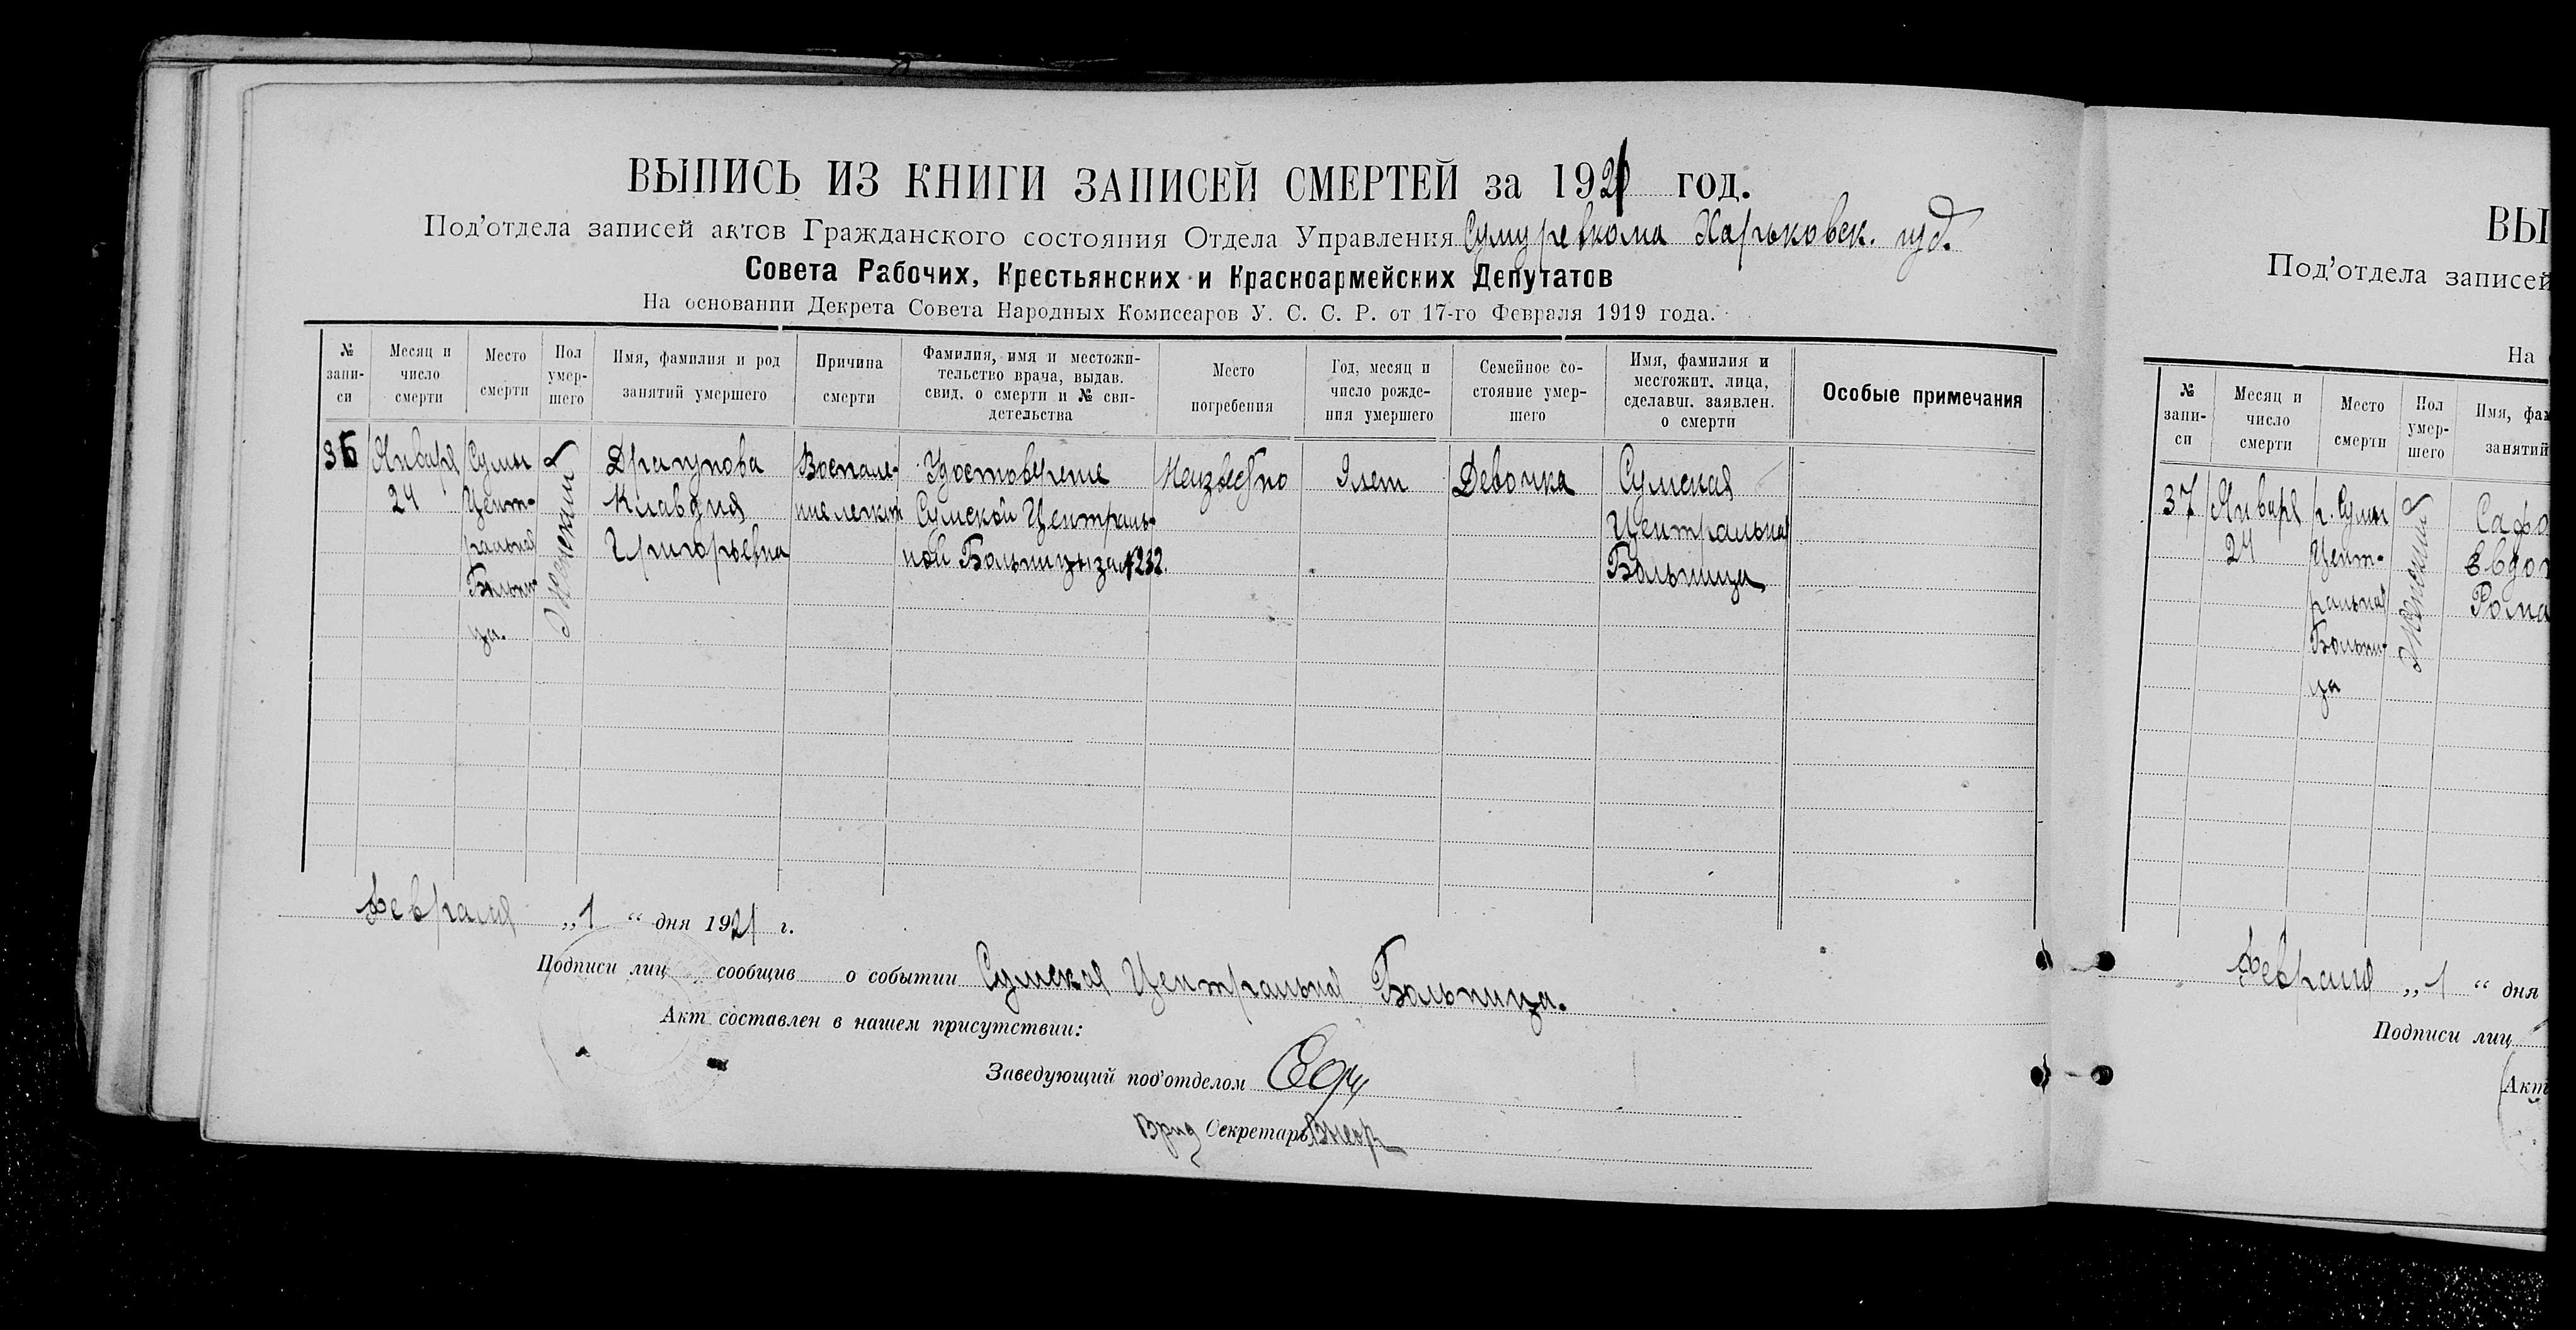 ВЫПИСЬ ИЗ КНИГИ ЗАПИСЕЙ СМЕРТЕЙ за 1921 год.
Под'отдела записей актов Гражданского состояния Отдела Управления Сумуревкома Харьковск. губ.
Совета Рабочих, Крестьянских и Красноармейских Депутатов
На основании Декрета Совета Народных Комиссаров У. С. С. Р. от 17-го Февраля 1919 года.
№ запи-
си
Месяц и
число
смерти
Место
смерти
Пол
умер-
шего
Имя, фамилия и род
занятий умершего
Причина
смерти
Фамилия, имя и местожи-
тельство врача, выдав.
свид. о смерти и № сви-
детельства
Место
погребения
Год, месяц и
число рожде-
ния умершего
Семейное со-
стояние умер-
шего
Имя, фамилия и
местожит. лица,
сделавш. заявлен.
о смерти
Особые примечания
36
Января
24
Сумы
Цент-
ральная
Больни-
ца.
Женский
Драгунова
Клавдия
Григорьевна
Воспале-
ние легких
Удостоверение
Сумской Централь-
ной Больницы за №232.
Неизвестно
лет
Девочка
Сумская
Центральная
Больница
Февраля „1 “ дня 1921 г.
Подписи лиц сообщив о событии Сумская Центральная Больница.
Акт составлен в нашем присутствии:
Заведующий под'отделом
Врид Секретарь
ВЫ
Под'отдела записей
На
№
запи-
си
Месяц и
число
смерти
Место
смерти
Пол
умер-
шего
Имя, фам
занятий
37
Января
24
г. Сумы
Цент-
ральная
Больни-
ца
Женский
Сафо
Евдо
Рома
Февраля „1 “ дня
Подписи лиц
Акт